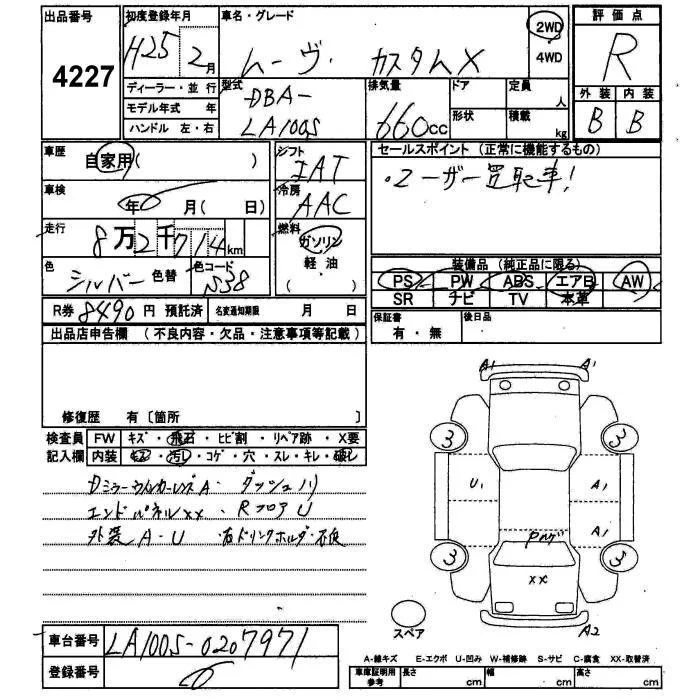 出品番号
4227
初度登録年月
H25 2月
ディーラー・並行
モデル年式 年
ハンドル 左・右
車名・グレード
ムーヴ カスタムX
2WD
4WD
型式
DBA-
LA100S
排気量
660cc
ドア
形状
定員
人
積載
kg
評価点
R
外装 内装
B B
車歴
自家用( )
車検
年 月( 日)
走行
8万2千714km
色
シルバー 色替
色コード
S38
R券 8490円 預託済
名変通知期限 月 日
シフト
IAT
冷房
AAC
燃料
ガソリン
軽・油
( )
セールスポイント (正常に機能するもの)
・ユーザー買取車!
装備品 (純正品に限る)
PS PW ABS エアB AW
SR ナビ TV 本革
保証書
有・無
後日品
出品店申告欄 (不良内容・欠品・注意事項等記載)
修復歴 有〔箇所 〕
検査員
記入欄
FW キズ・飛石・ヒビ割・リペア跡・X要
内装 キズ・汚れ・コゲ・穴・スレ・キレ・壊し
ダッシュ
エンドパネルXX・RフロアU
外装A-U 右ドリンクホルダー不良
A1 A1
3 3
U1 A1
A1
XX
3
A2
スペア
車台番号
LA100S-0207971
登録番号
A-線キズ E-エクボ U-凹み W-補修跡 S-サビ C-腐食 XX-取替済
車庫証明用
参考
長さ cm 幅 cm 高さ cm